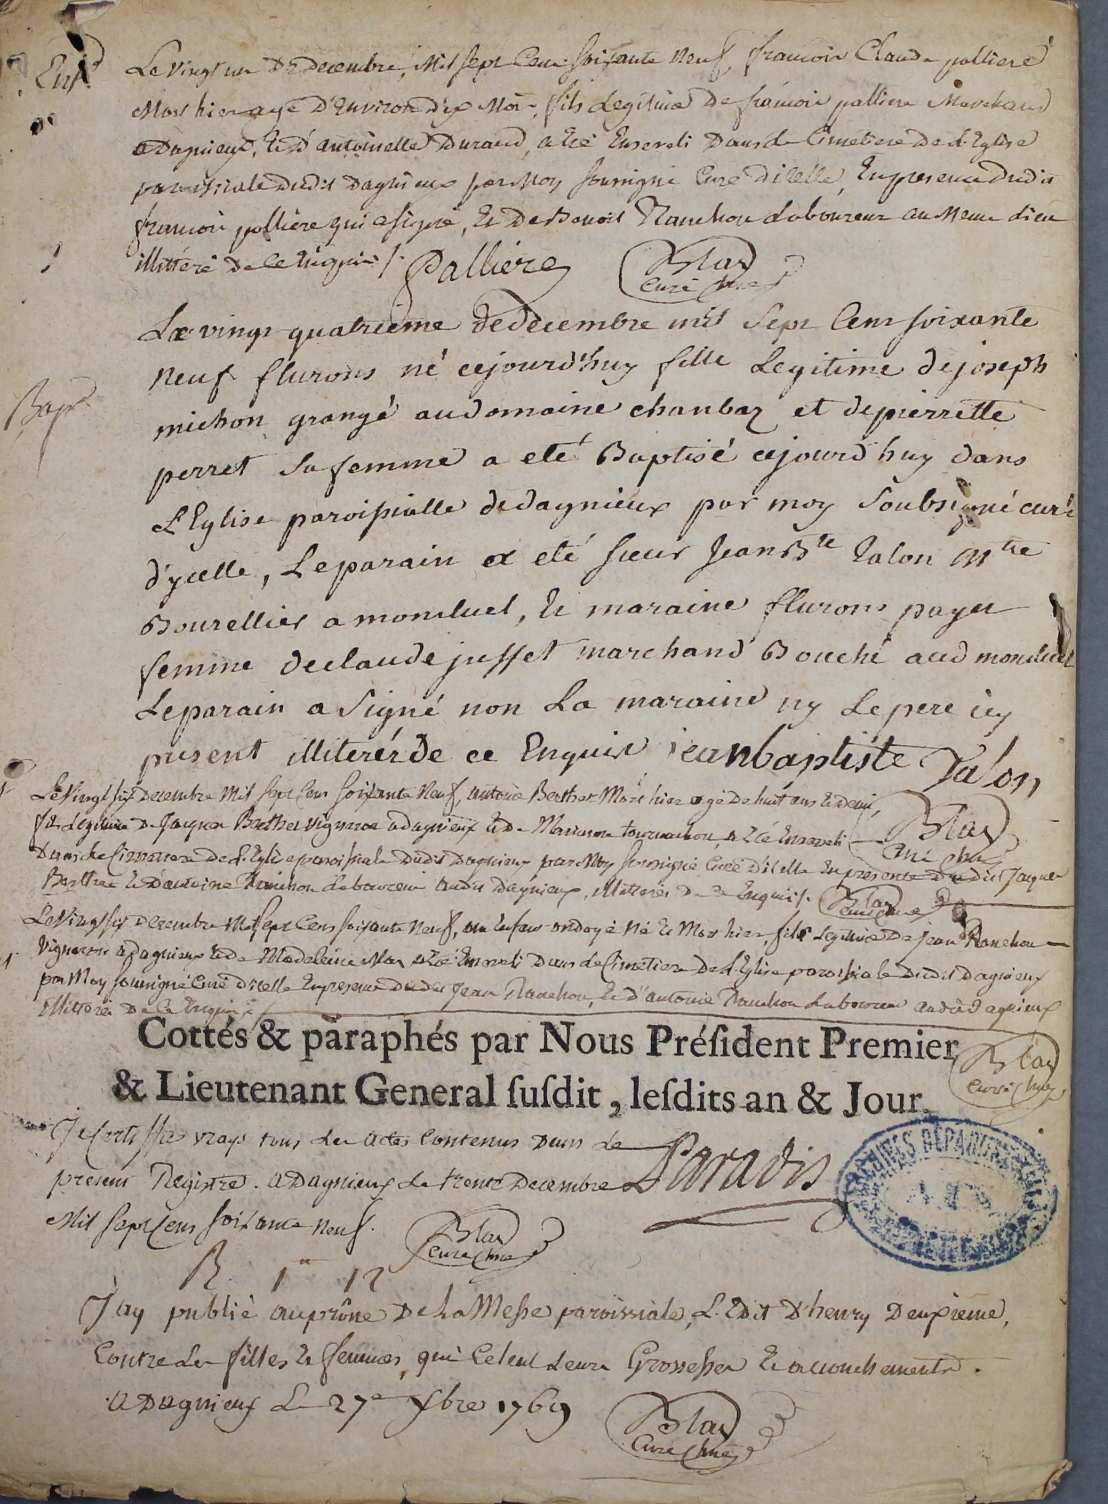 Ent
Le vingt un De decembre, Mil sept Cens soixante Neuf, francois Claude palliere
Mort hier agé D'Environ dix Mois, fils Legitime De francois palliere Marchand
a Dagnieux, Et d'antoinette Durand, a Eté Enseveli Dans Le Cimetiere De L'Eglise
paroissiale Dudit Dagnieux par Moy soussigné Curé D'icelle, En presence Dudit
francois palliere qui a signé, Et De Benoit Ranchon Laboureur au Meme Lieu
illitéré De Ce Enquis /. Palliere Blad
Curé
Le vingt quatrieme de decembre mil Sept Cens soixante
neuf flurons né cejourd'huy fille Legitime de joseph
Bap
michon grangé au domaine chanbaz et de pierrette
perret sa femme a eté Baptisé cejourd'huy dans
L'Eglise paroissialle de dagnieux par moy Soubsigné curé
d'ycelle, Le parain a eté sieur Jean Bte Talon Mtre
Bourellier a monluel, Et maraine flurons payet
femme de claude jusset marchand Bouché aud monluel
Le parain a Signé non La maraine ny Le pere icy
present illiterér de ce Enquis jean baptiste Talon
Le Vingt six decembre Mil sept Cens soixante Neuf, antoine Berthet Mort hier agé De huit ans Et demi,
fils Legitime De Jacques Berthet vigneron a dagnieux Et De Marianne tournachon, a Eté Enseveli
Blad
Curé
Dans Le Cimetiere De L'Eglise paroissiale Dudit Dagnieux par Moy soussigné Curé D'icelle En presence Du dit Jacques
Berthet Et D'antoine Ranchon Laboureur audit Dagnieux, illitterés De Ce Enquis /. Blad
Curé
Le Vingt six Decembre Mil Sept Cens soixante Neuf, un Enfant ondoyé Né Et Mort hier, fils Legitime De Jean Ranchon
Vigneron a Dagnieux Et De Madeleine Mar a Eté Enseveli Dans Le Cimetiere De L'Eglise paroissiale Dudit Dagnieux
par Moy soussigné Curé D'icelle En presence Du dit Jean Ranchon, Et d'antoine Ranchon Laboureur audit Dagnieux
illitterés De Ce Enquis /.
Cottés & paraphés par Nous Préſident Premier
Blad
Curé
& Lieutenant General ſuſdit, leſdits an & Jour.
Je Certiffie vrays tous Les actes Contenus Dans Le
Paradis
present Registre. a Dagnieux Le trente Decembre
Mil sept Cens soixante Neuf. Blad
Curé
R. 1 12
J'ay publié au prône De La Messe paroissiale, L'Edit D'henry Deuxieme,
Contre Les filles Et femmes, qui Celent Leurs Grossesses Et accouchements.
a Dagnieux Le 27e Xbre 1769 Blad
Curé
ARCHIVES DÉPARTEMENTALES